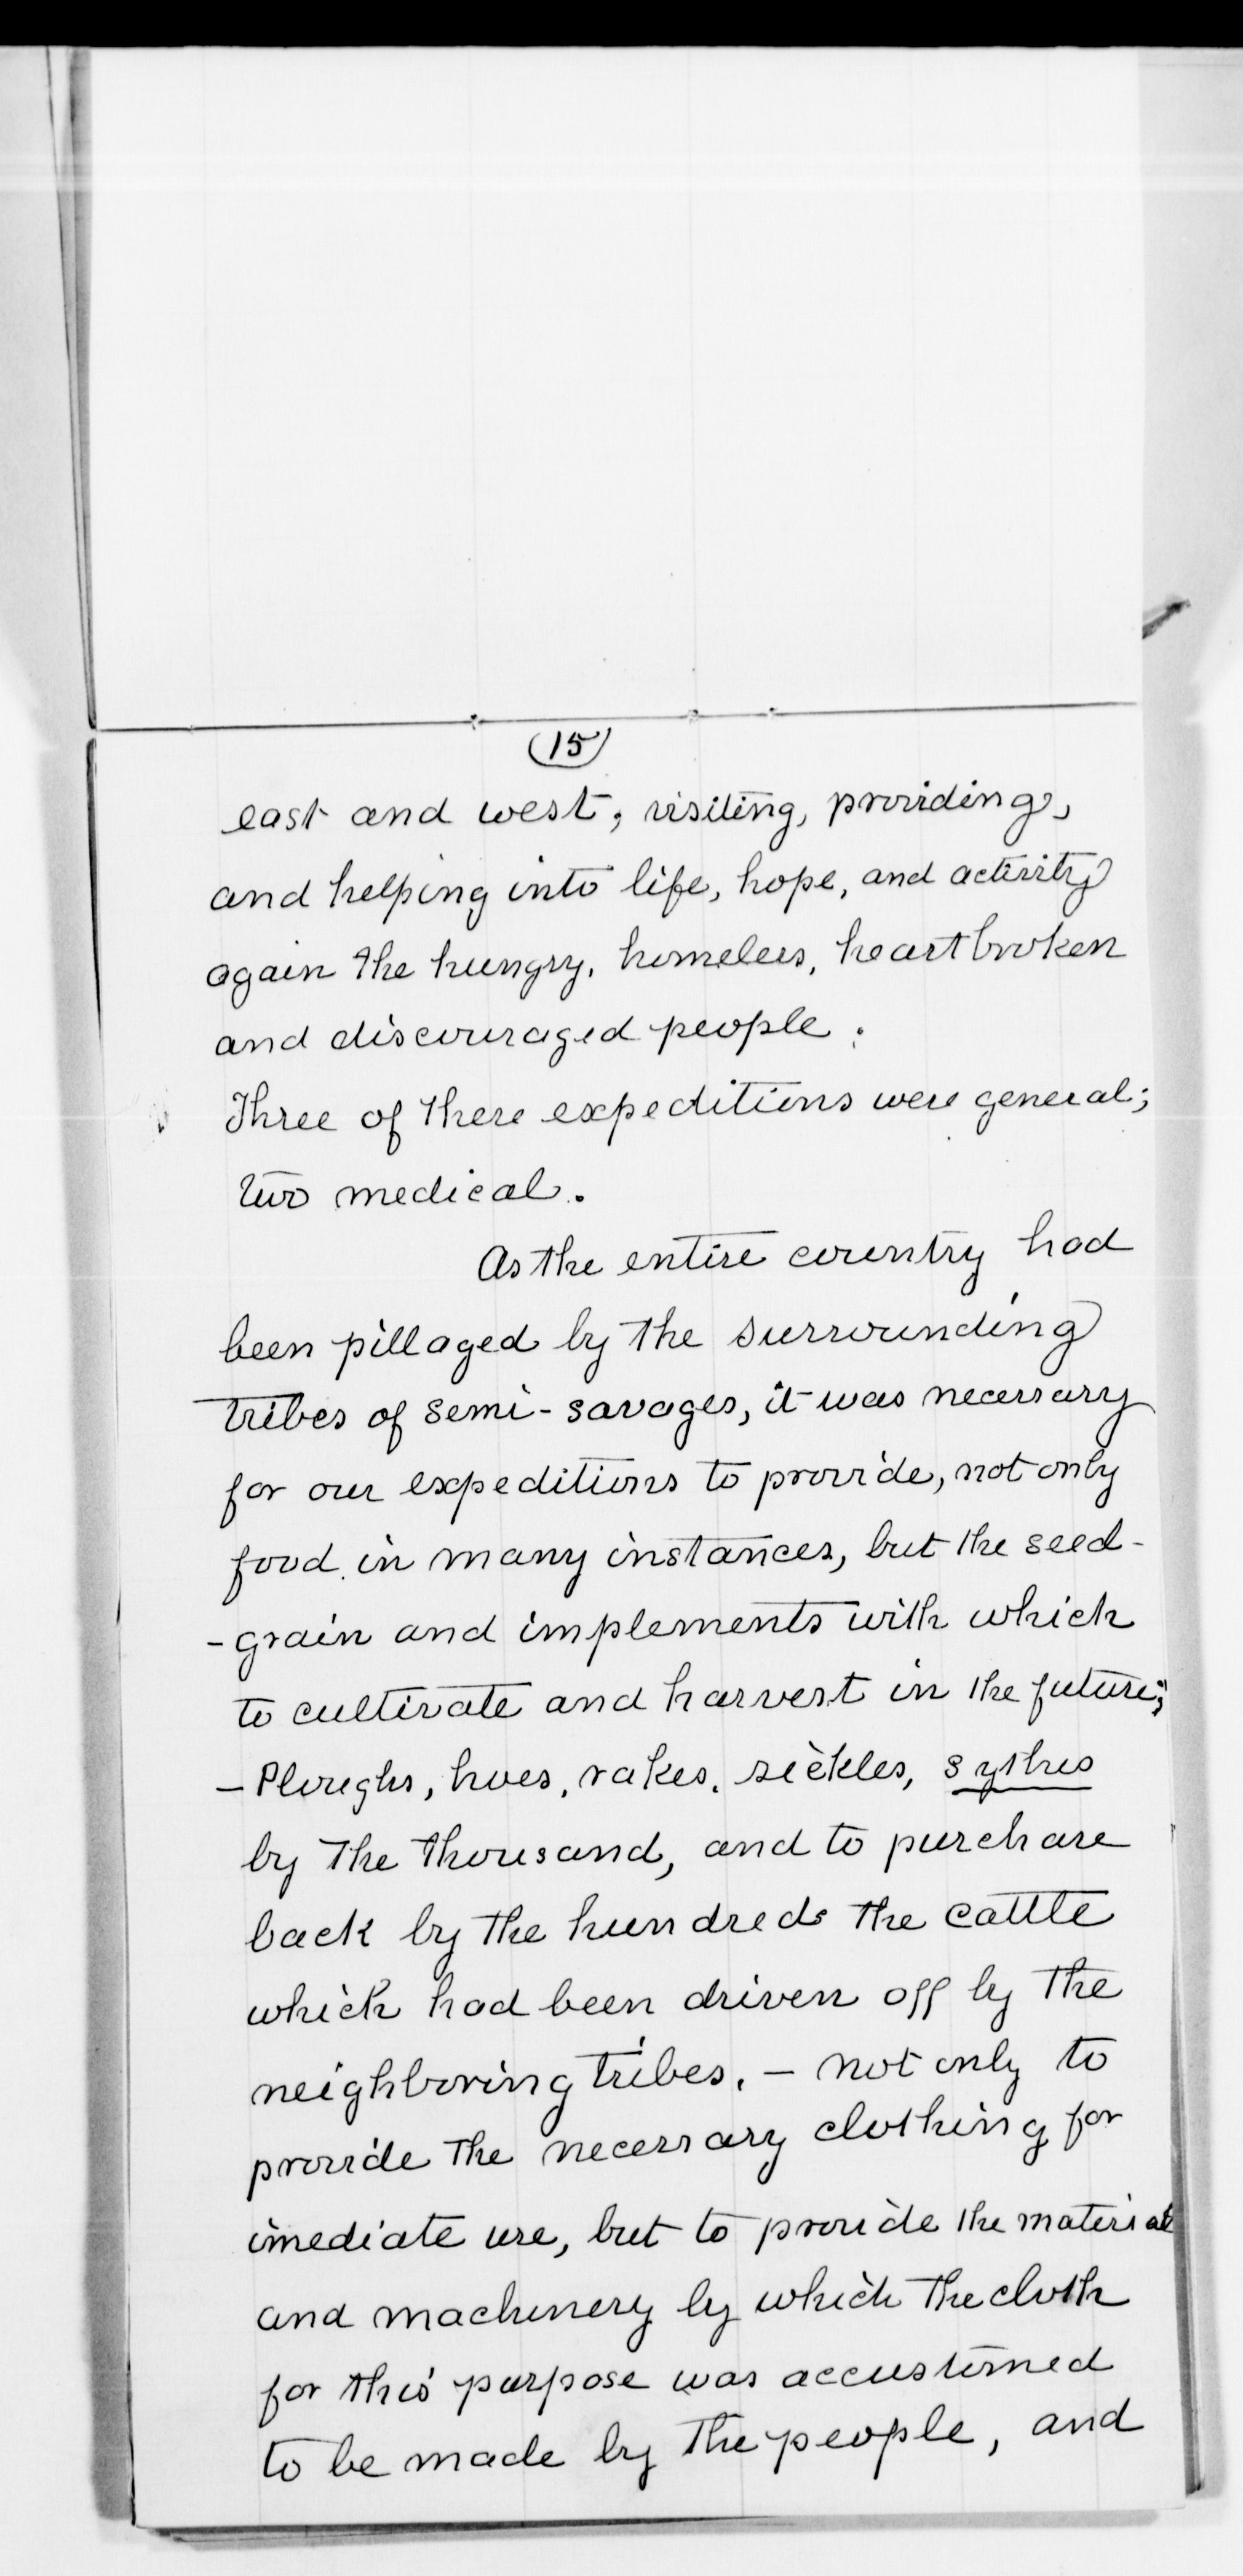 15
east and west, visiting, providing,
and helping into life, hope, and activity
again the hungry, homeless, heartbroken
and discouraged people.
Three of these expeditions were general;
two medical.
As the entire country had
been pillaged by the surrounding
tribes of semi-savages, it was necessary
for our expeditions to provide, not only
food in many instances, but the seed-
-grain and implements with which
to cultivate and harvest in the future;
- Ploughs, hoes, rakes, sickles, sythes
by the thousand, and to purchase
back by the hundreds the cattle
which had been driven off by the
neighboring tribes. - not only to
provide the necessary clothing for
imediate use, but to provide the material
and machinery by which the cloth
for this purpose was accustomed
to be made by the people, and